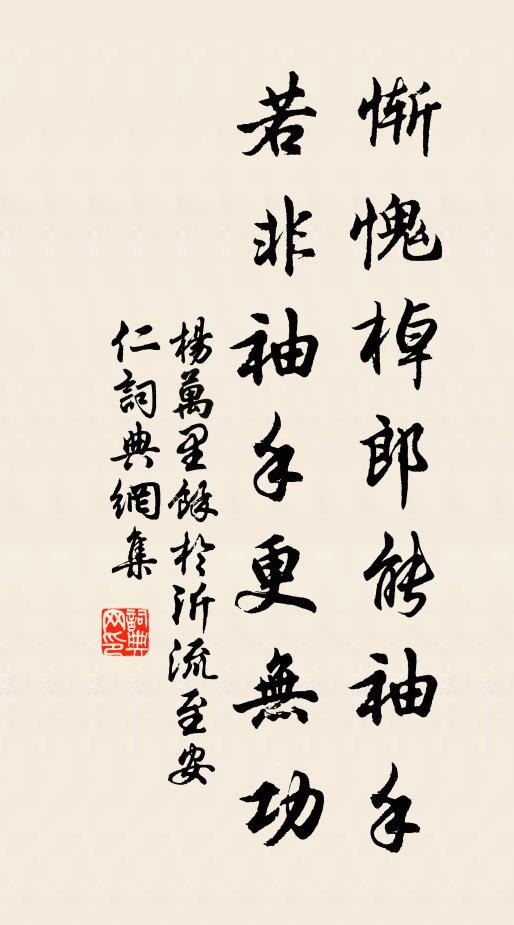 慚愧棹郎能袖手
若非袖手更無功
楊萬里餘於泝流至安
仁詞典網集
詞典網印